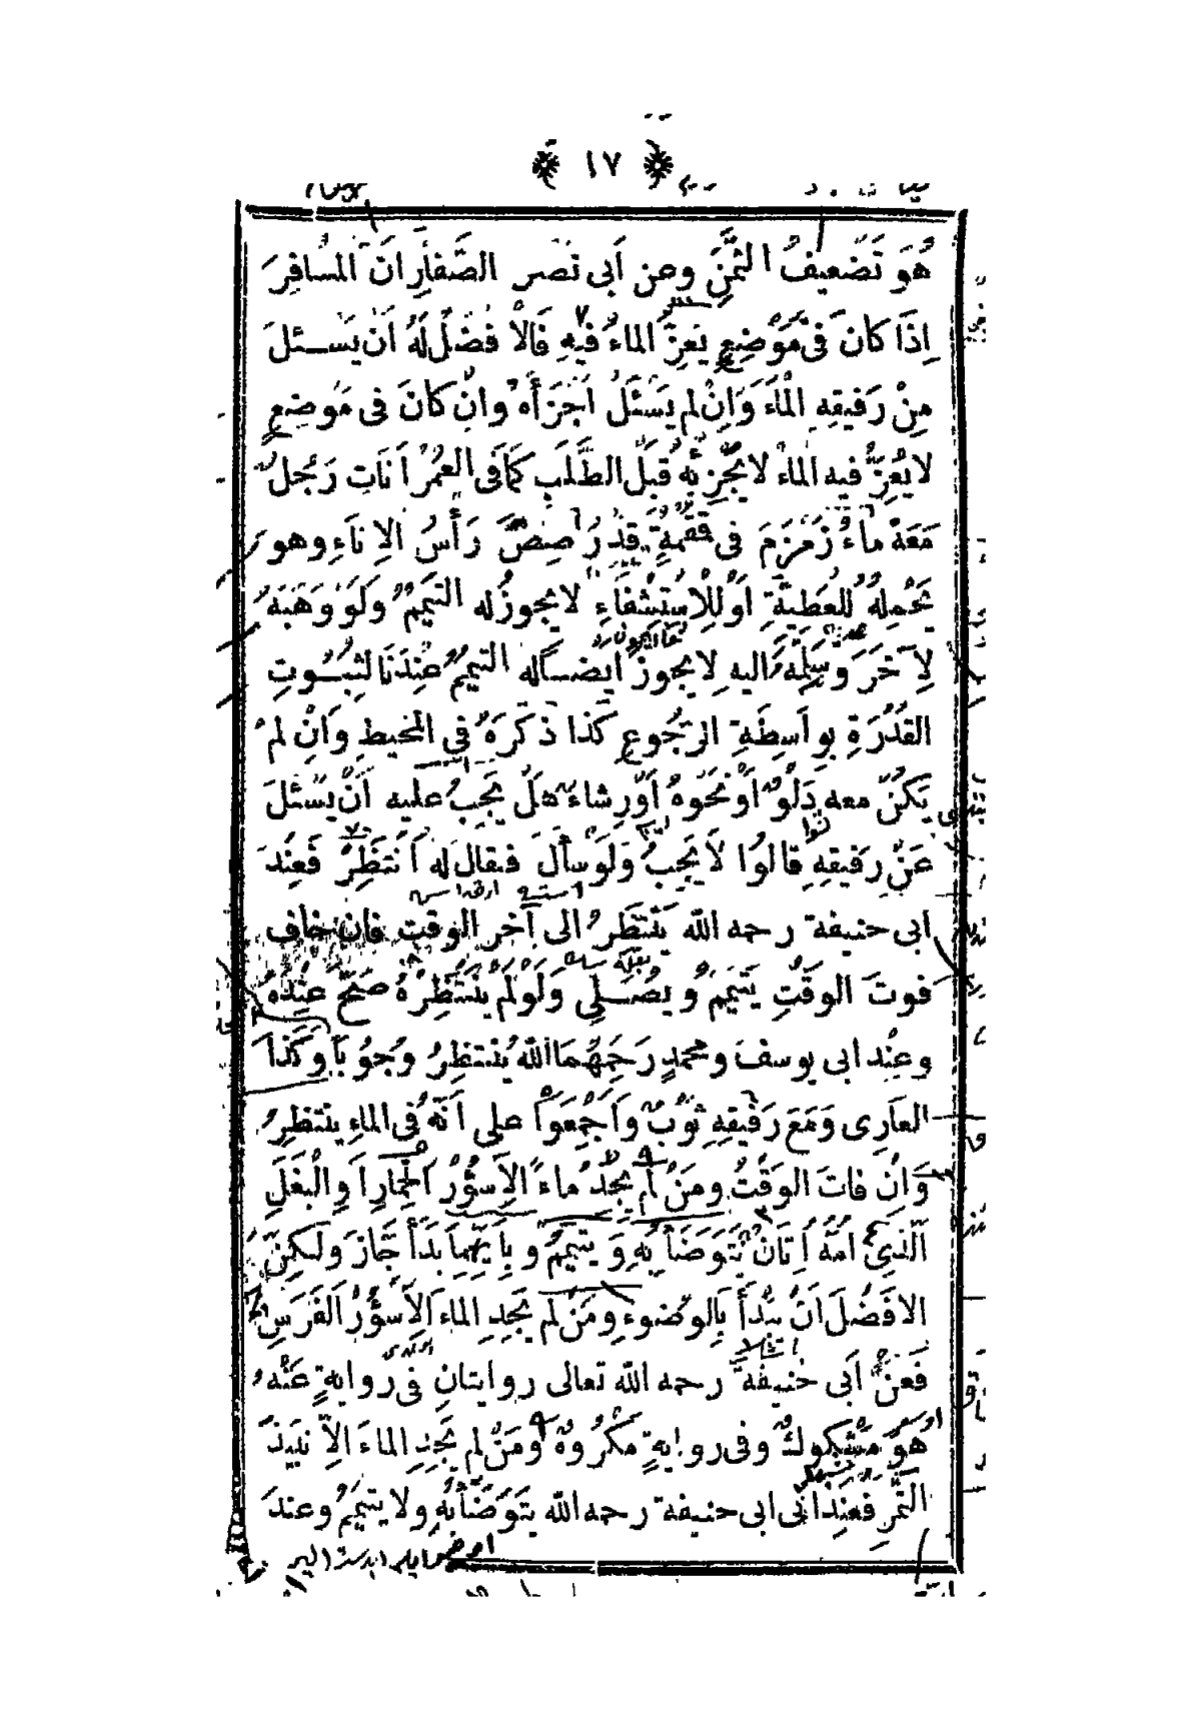 ﴿ ١٧ ﴾
هُوَ تَضْعِيفُ الثَّمَنِ وعن اَبى نَصْر الصَّفَّارِ اَنَّ الْمُسَافِرَ
اِذَا كَانَ فى مَوْضِعٍ يَعِزُّ الماءُ فيهِ فَالْاَفْضَلُ لَهُ اَنْ يَسْـئلَ
مِنْ رَفيقِهِ الْمَاءَ وَاِنْ لم يَسْئَلْ اَجْزَأَهُ وانْ كانَ فى مَوْضِعٍ
لا يَعِزُّ فيه الماءُ لا يُجْزِئُهُ قَبْلَ الطَّلَبِ كَمَا فى العُمْرَانَاتِ رَجُلٌ
مَعَهُ مَاءُ زَمْزَمَ فى قُمْقُمَةٍ قَدْ رَصَّصَ رَأْسَ الاِنَاءِ وهو
يَحْمِلُهُ لِلْعَطِيَّةِ اَوْ لِلْاِسْتِشْفَاءِ لا يجوزُ له التَيَمُّمُ وَلَوْ وَهَبَهُ
لِآخَرَ وَسَلَّمَهُ اليه لا يجوزُ ايضـًا له التيمُّمُ عِنْدَنَا لِثُبُـوتِ
القُدْرَةِ بِوَاسِطَةِ الرُّجُوعِ كذا ذَكَرَهُ فى المحيطِ وَاِنْ لم
يَكُنْ معه دَلْوٌ اَوْ نَحْوُهُ اَوْ رِشاءٌ هَلْ يَجِبُ عليه اَنْ يَسْئلَ
عَنْ رَفيقِهِ قالوُا لَا يَجِبُ وَلَوْ سألَ فقال له اَنْتَظِرْ فَعِنْدَ
ابى حنيفة رحمه اللّه يَنْتَظِرُ الى آخر الوقتِ فان خاف
فوتَ الوَقْتِ يَتَيَمَّمُ وَ يُصَـلِى وَلَوْ لَمْ يَنْتَظِرْهُ صَحَّ عِنْدَهُ
وعِنْد ابى يوسفَ ومحمدٍ رَحِمَهُمَا اللّه يَنْتظِرُ وُجُوبًا وكَذا
العَارِى وَمَعَ رَفيقِهِ ثَوْبٌ وَاَجْمَعُوا على اَنَّهُ فى الماءِ ينتظِرُ
وَاِنْ فاتَ الوَقْتُ ومَنْ لَمْ يَجِدْ مَاءً اِلاَّ سُؤْرَ الْحِمارِ اَوِ الْبَغْلِ
الَّذِى اُمُّهُ اَتَانٌ يَتَوَضَّأُ بِهِ وَ يتيمَّمُ و بِاَيِّهِمَا بَدَأَ جَازَ ولكِنَّ
الافضَلَ اَنْ يَبْدَأَ بِالوُضوءِ ومَنْ لَمْ يَجِدِ الماءَ اِلاَّ سُؤْرَ الفَرَسِ
فَعنْ اَبى حنيفَةَ رحمه اللّه تعالى روايتانِ فى روايةٍ عَنْهُ
هُوَ مَشْكوكٌ وفى روايةٍ مَكْرُوهٌ ومَنْ لم يَجِدِ الماءَ الاَّ نَبيذَ
التَّمْرِ فَعِنْدَ ابى حنيفة رحمه اللّه يَتَوَضَّأُ بِهِ ولا يتيمَّمُ وعندَ